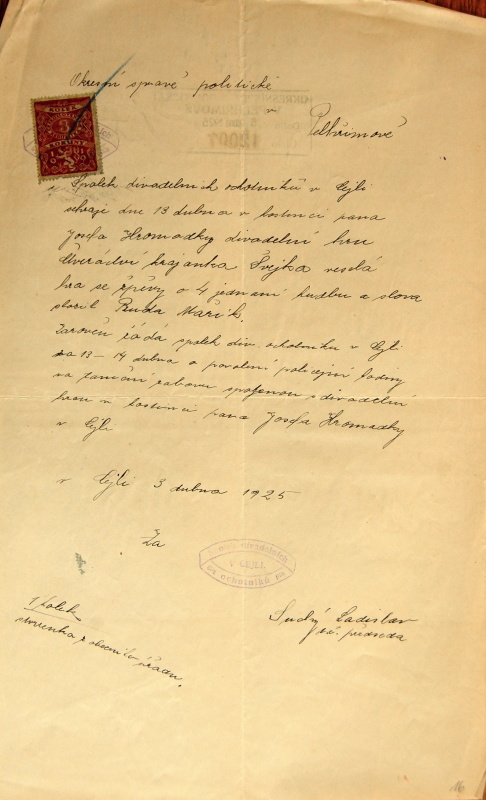 Okresní správě politické
v
Pelhřimově
KOLEK
3
KORUNY
12001
Spolek divadelních ochotníků v Cejli
sehraje dne 13 dubna v hostinci pana
Josefa Hromadky divadelní hru
Čtveráctví krajanka Švejka veselá
hra se zpěvy o 4 jednání hudbu a slova
složil Ruda Mařík.
Zároveň žádá spolek div. ochotníku v Cejli
za 13–14 dubna o povolení policejní hodiny
na taneční zabavu spojenou s divadelní
hrou v hostinci pana Josefa Hromadky
v Cejli
v Cejli 3 dubna 1925
Za
Spolek divadelních
V CEJLI.
ochotníků
Suchý Ladislav
předseda
1 kolek
stvrzenka z obecního úřadu.